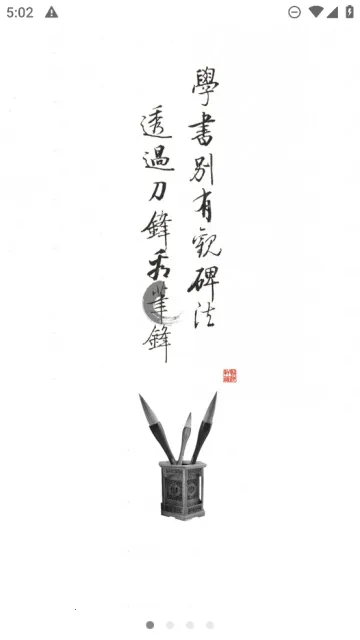 5:02
學書別有觀碑法
透過刀鋒看筆鋒